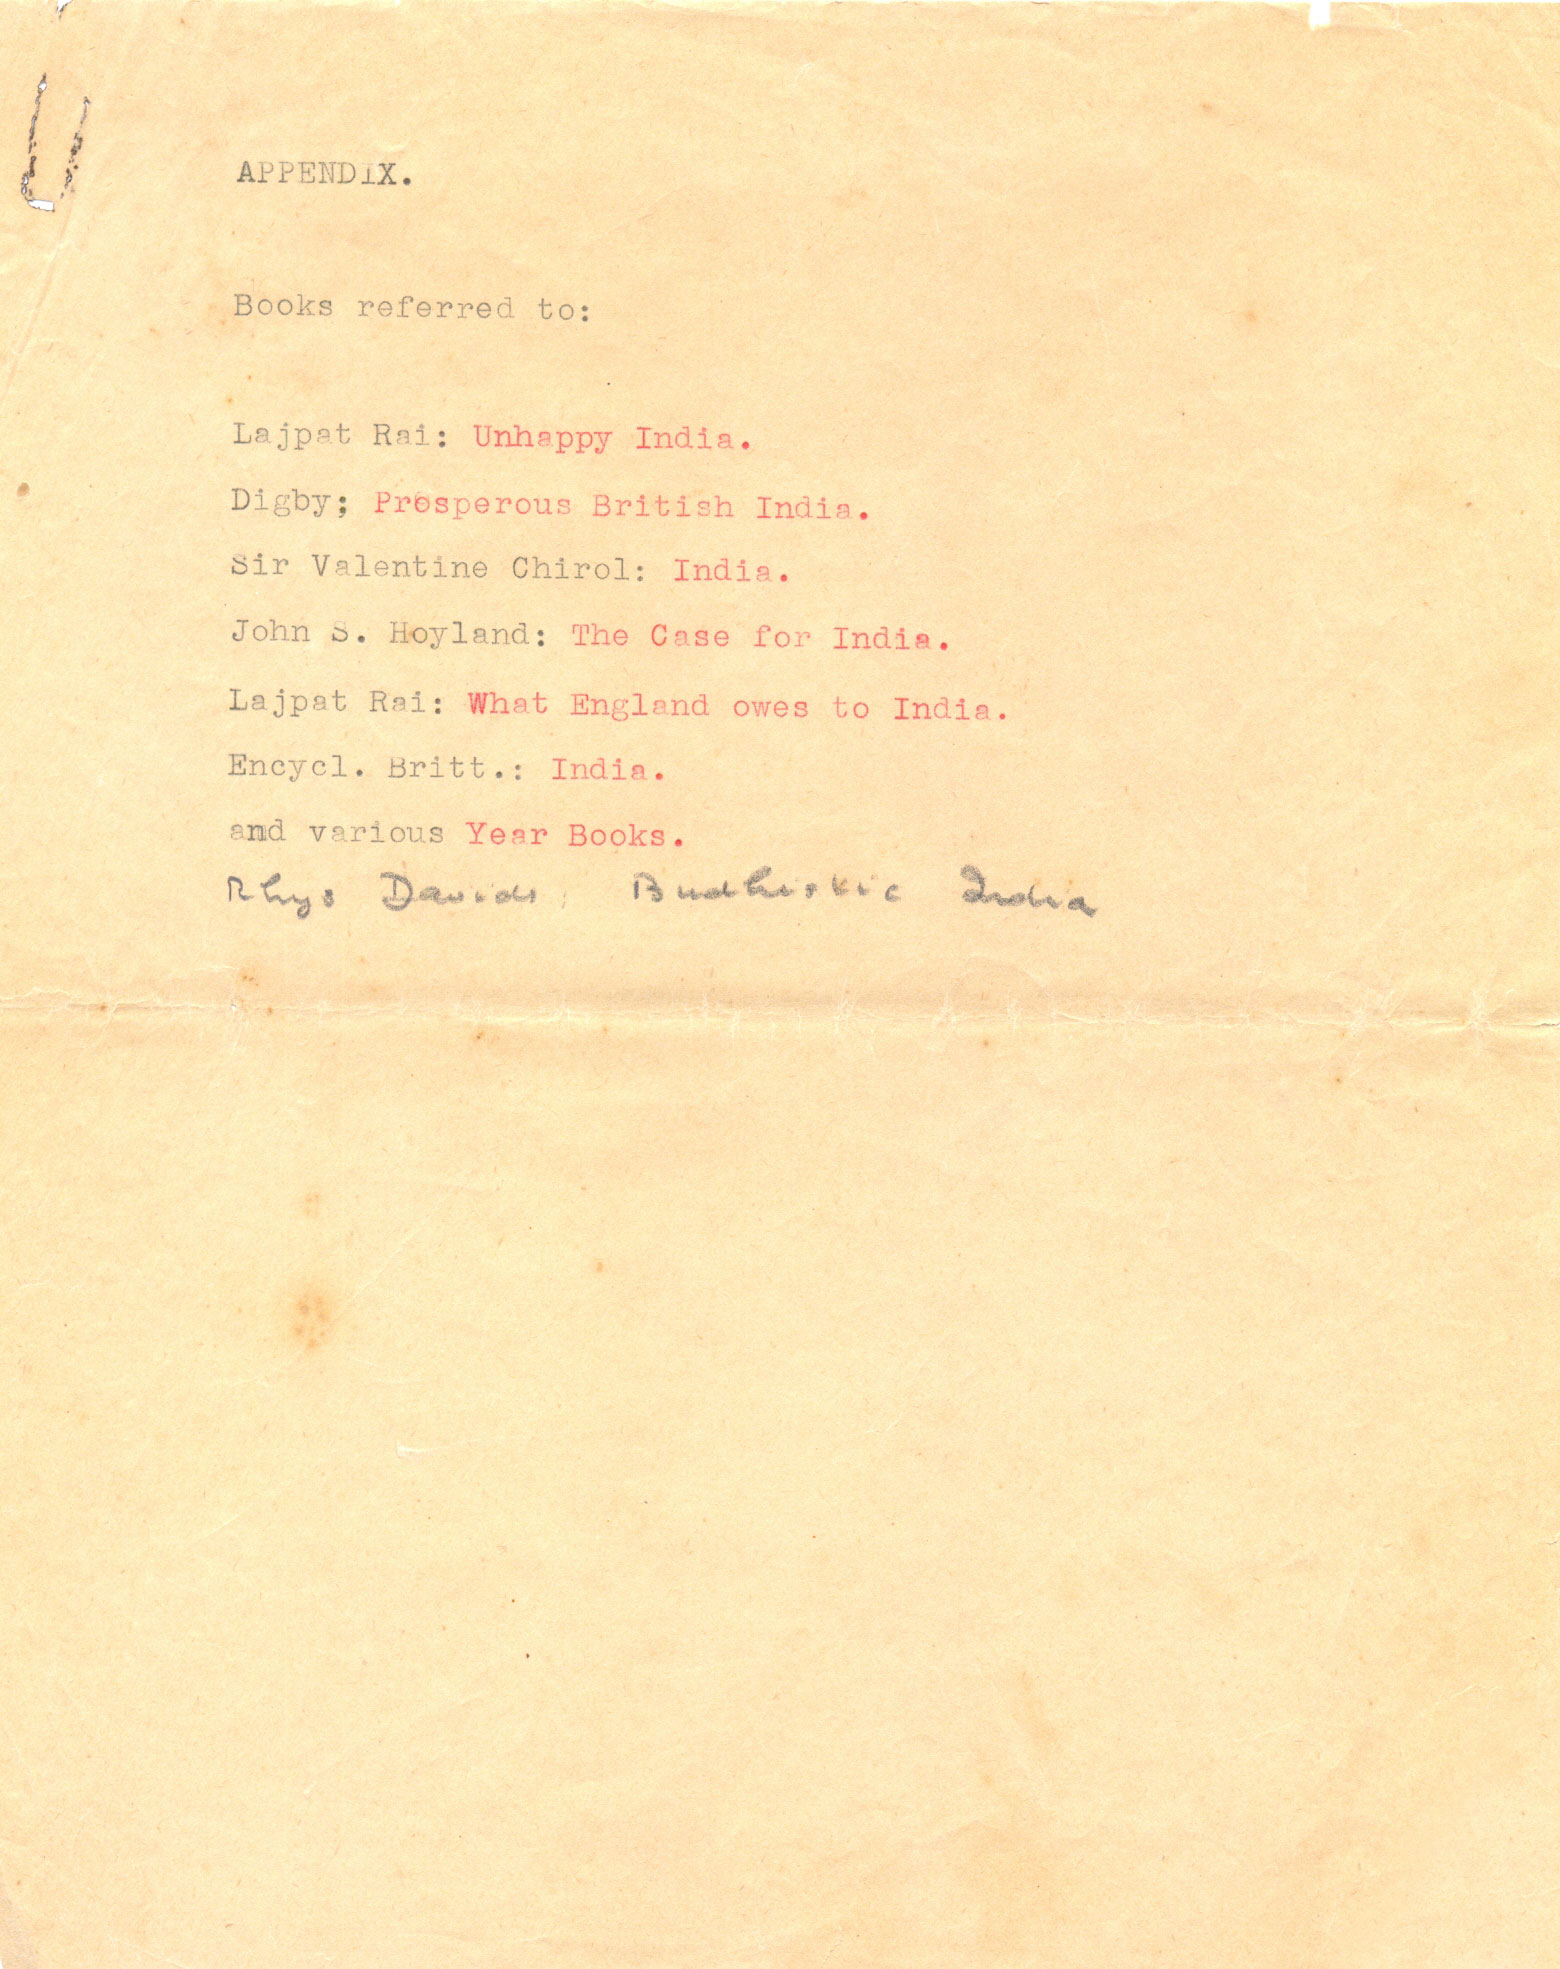 APPENDIX.
Books referred to:
Lajpat Rai: Unhappy India.
Digby; Prosperous British India.
Sir Valentine Chirol: India.
John S. Hoyland: The Case for India.
Lajpat Rai: What England owes to India.
Encycl. Britt.: India.
and various Year Books.
Rhys Davids, Budhistic India